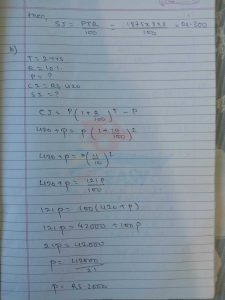 SI = PTR/100 = 1875×2×8/100 = Rs.300
b)
T = 2 yrs
R = 10%
P = ?
CI = RS 420
SI = ?
CI = P(1+R/100)^T - P
420+P = P(1+10/100)^2
420+P = P(11/10)^2
420+P = 121P/100
121P = 100(420+P)
121P = 42000+100P
21P = 42000
P = 42000/21
P = RS.2000